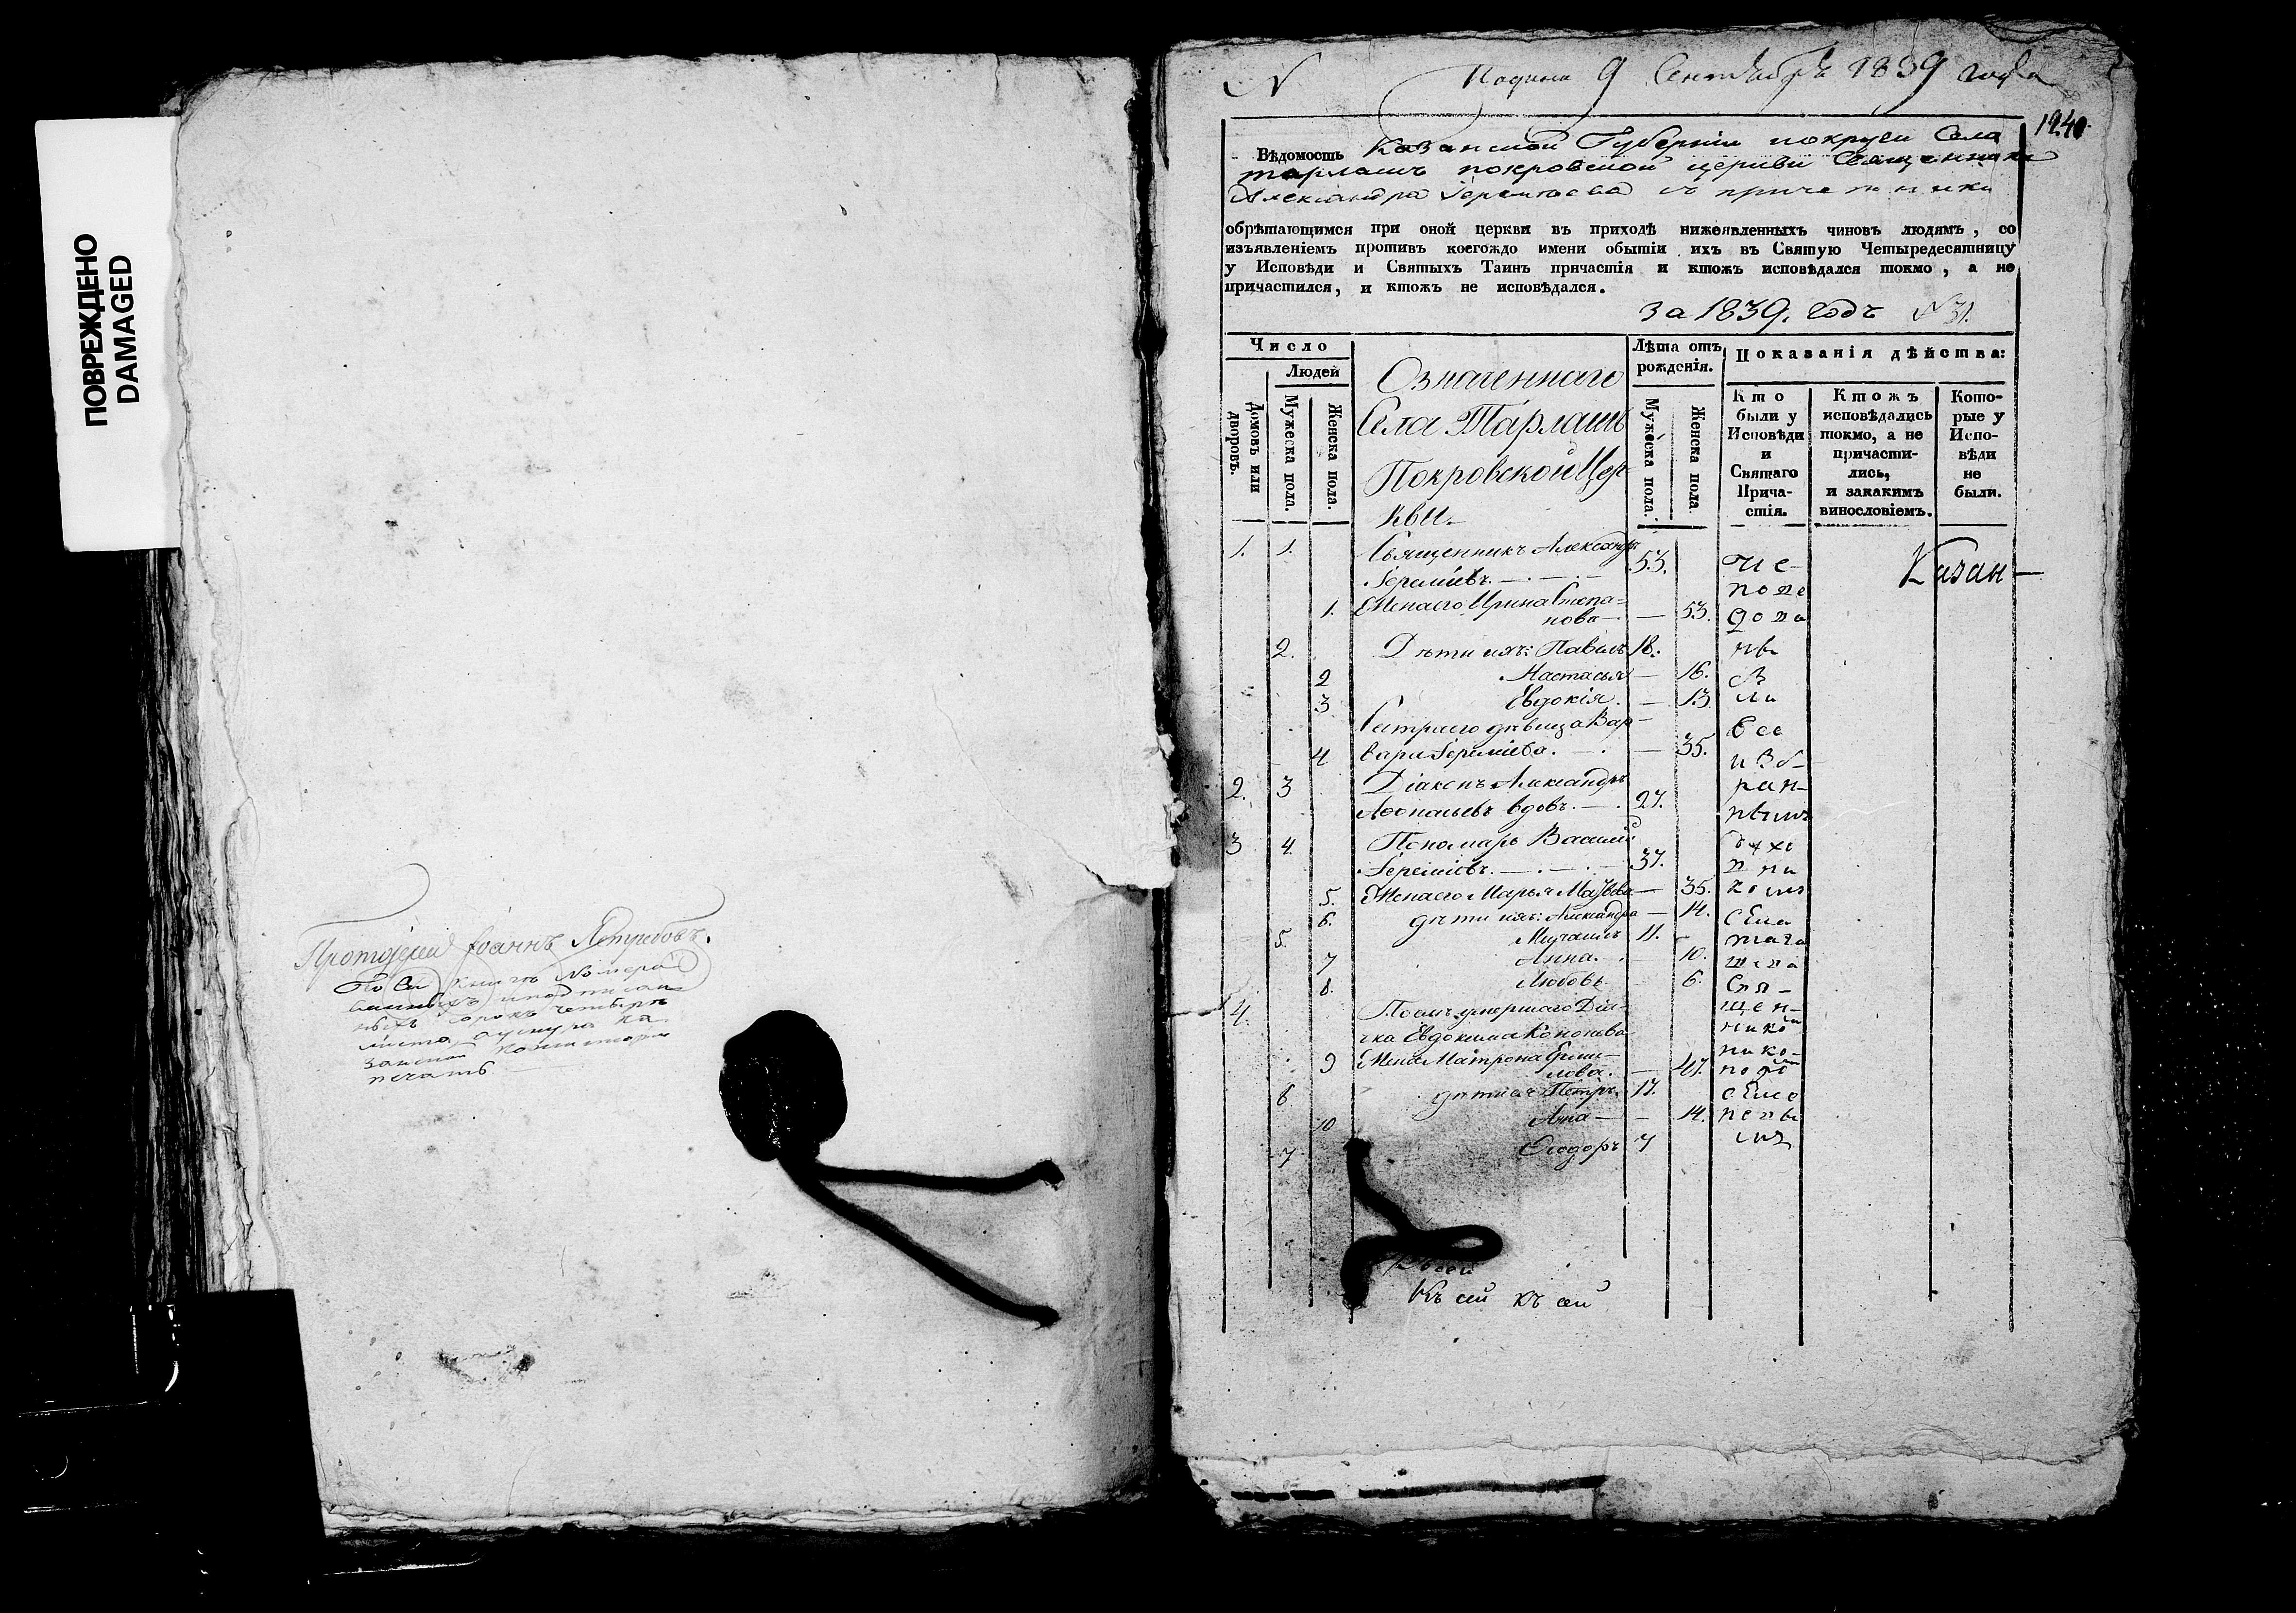 ПОВРЕЖДЕНО
DAMAGED
Протоіерей Іоаннъ Ястребовъ.
По сей книгѣ номеро
ванныхъ и подписан
ныхъ сорокъ четыре
листа, а у шнура Ка
занской Консисторіи
печать
N Подана 9 Сентября 1839 года
1240
Вѣдомость Казанской Губерніи округи Села
Тарлашъ покровской церкви Священника
Александра Іереміева съ причетники
обрѣтающимся при оной церкви въ приходѣ нижеявленныхъ чиновъ людямъ, со
изъявленіемъ противъ коегождо имени обытіи ихъ въ Святую Четыредесятницу
у Исповѣди и Святыхъ Таинъ причастія и ктожъ исповѣдался токмо, а не
причастился, и ктожъ не исповѣдался.
за 1839. годъ N 31.
Число
Людей
Домовъ или дворовъ.
Мужеска пола.
Женска пола.
Означеннаго
Села Тарлашъ
Покровской Цер-
кви.
Лѣта отъ
рожденія.
Мужеска пола.
Женска пола.
Показанія дѣйства:
Кто
были у
Исповѣди
и
Святаго
Прича-
стія.
Ктожъ
исповѣдались
токмо, а не
причасти-
лись,
и закакимъ
винословіемъ.
Кото-
рые у
Испо-
вѣди
не
были.
1. 1. Священникъ Александръ
Іереміевъ. — . — . — 53.
Казан—
1. Жена его Ирина Степа=
нова — . — 53.
2. Дѣти ихъ: Павелъ 18.
2 Настасья — 16.
3 Евдокія. — 13
Сестра его дѣвица Вар-
4 вара Іереміева. — . — 35.
2. 3 Діаконъ Александръ
Аѳонасьевъ вдовъ. — . 27.
3 4. Пономарь Василій
Іереміевъ. — . — . — 37.
5. Жена его Марья Матвѣева — 35.
6. дѣти ихъ: Александра — 14.
5. Михаилъ 11.
7 Анна. — 10.
8. Любовь 6.
4. Послѣ умершаго Дья-
чка Евдокима Кононова
9 Жена Матрона Ерми-
лова. — 47.
6 дѣти ея Петръ 17.
10 Анна — 14.
7 Ѳеодоръ 7
Къ сей
Къ сей къ сей